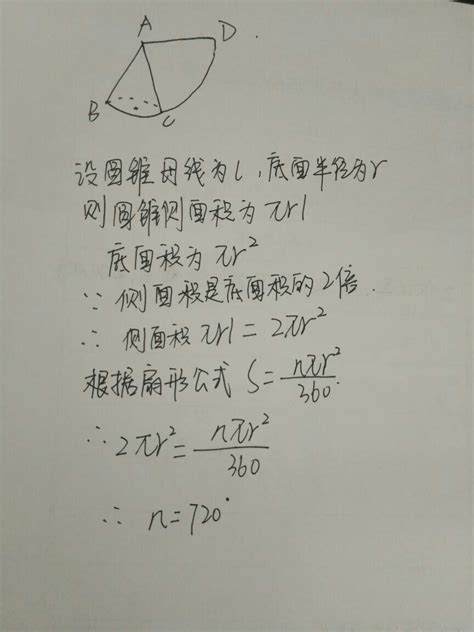 A
D
B
C
设圆锥母线为l,底面半径为r
则圆锥侧面积为πrl
底面积为πr²
∵ 侧面积是底面积的2倍.
∴ 侧面积πrl=2πr²
根据扇形公式 S=nπr²/360.
∴ 2πr²=nπr²/360
∴ n=720°